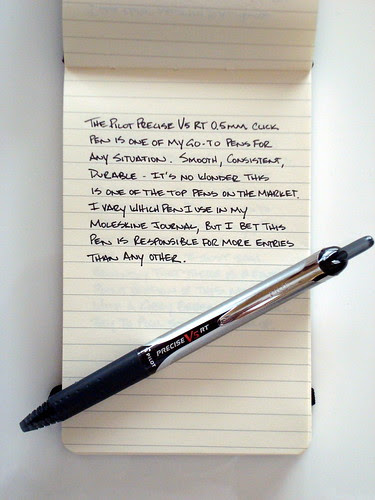 The Pilot Precise V5 RT 0.5mm click
pen is one of my go-to pens for
any situation. Smooth, consistent,
durable - it's no wonder this
is one of the top pens on the market.
I vary which pen I use in my
Moleskine journal, but I bet this
pen is responsible for more entries
than any other.
PILOT PRECISE V5 RT